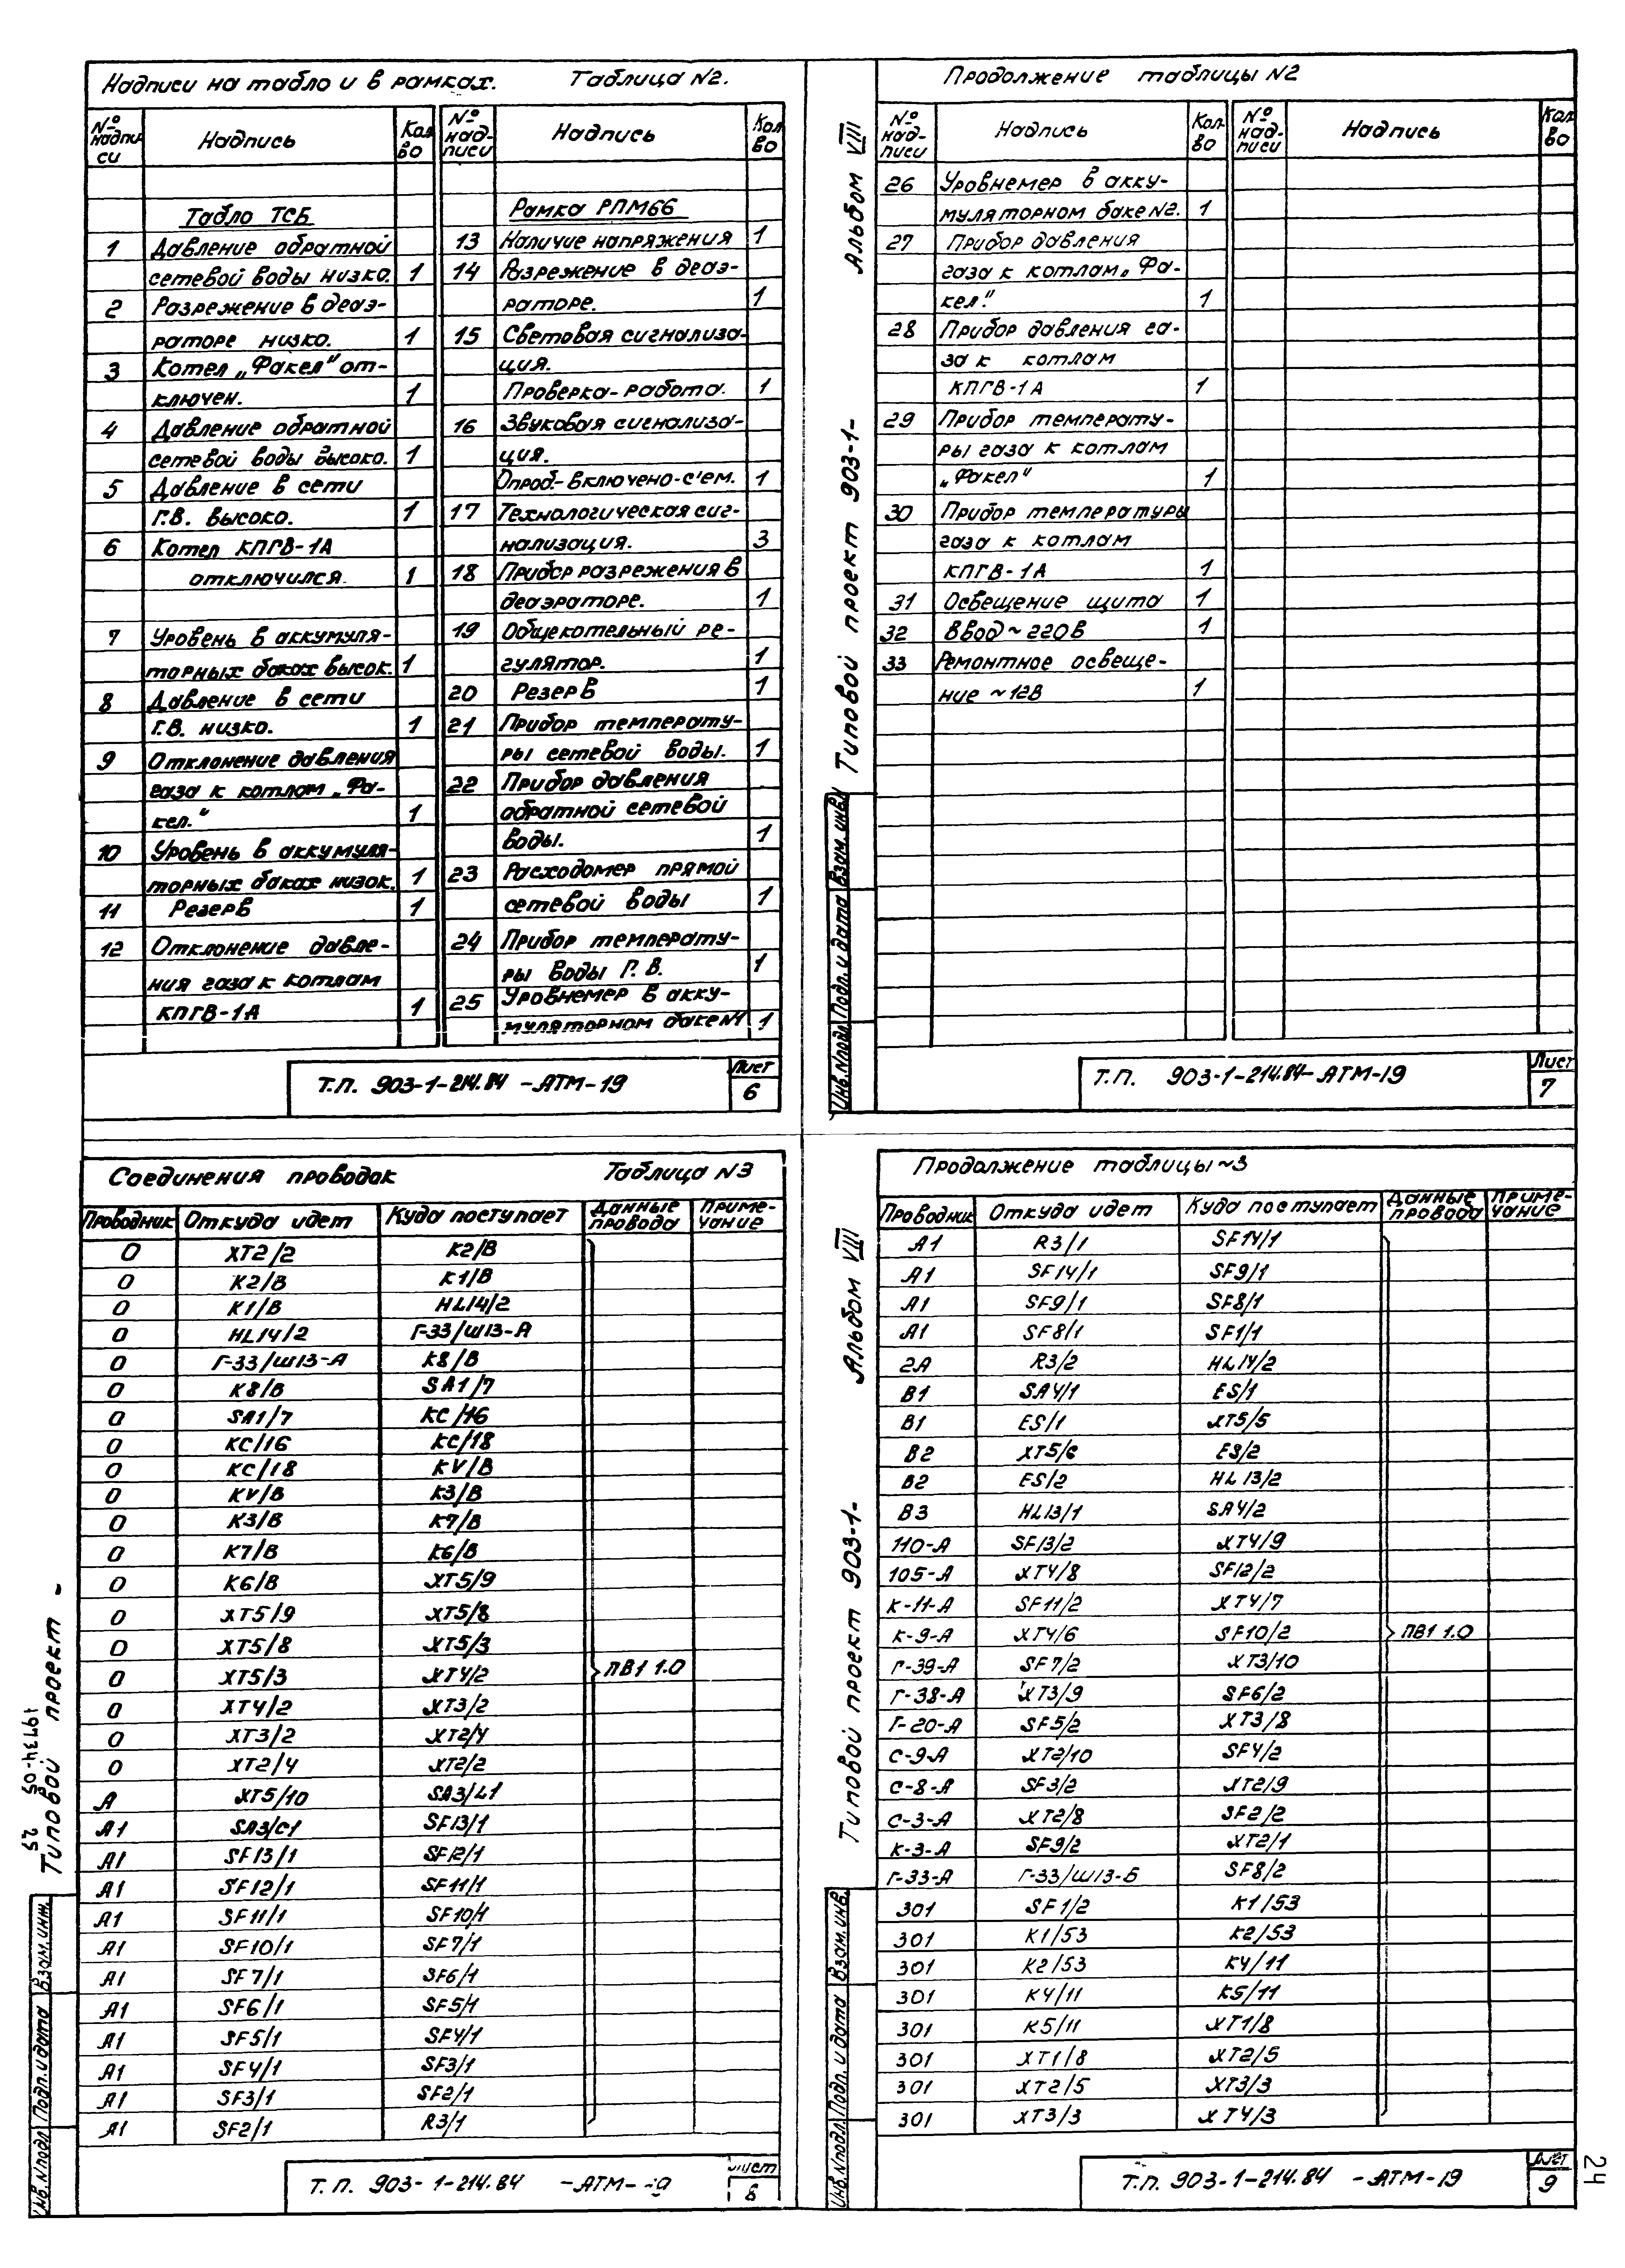 Надписи на табло и в рамках. Таблица №2.
№ надписи | Надпись | Кол-во | № надписи | Надпись | Кол-во
Табло ТСБ
1 Давление обратной
сетевой воды низко. 1
2 Разрежение в деаэ-
раторе низко. 1
3 Котел „Факел" от-
ключен. 1
4 Давление обратной
сетевой воды высоко. 1
5 Давление в сети
Г.В. высоко. 1
6 Котел КПГВ-1А
отключился. 1
7 Уровень в аккумуля-
торных баках высок. 1
8 Давление в сети
Г.В. низко. 1
9 Отклонение давления
газа к котлам „Фа-
кел." 1
10 Уровень в аккумуля-
торных баках низок. 1
11 Резерв 1
12 Отклонение давле-
ния газа к котлам
КПГВ-1А 1
Рамка РПМ66
13 Наличие напряжения 1
14 Разрежение в деаэ-
раторе. 1
15 Световая сигнализа-
ция.
Проверка-работа. 1
16 Звуковая сигнализа-
ция.
Опроб.-включено-с'ем. 1
17 Технологическая сиг-
нализация. 3
18 Прибор разрежения в
деаэраторе. 1
19 Общекотельный ре-
гулятор. 1
20 Резерв 1
21 Прибор температу-
ры сетевой воды. 1
22 Прибор давления
обратной сетевой
воды. 1
23 Расходомер прямой
сетевой воды 1
24 Прибор температу-
ры воды Г.В. 1
25 Уровнемер в акку-
муляторном баке №1 1
Т.П. 903-1-214.84 -АТМ-19
Лист
6
Продолжение таблицы №2
Альбом VIII
Типовой проект 903-1-
№ надписи | Надпись | Кол-во | № надписи | Надпись | Кол-во
26 Уровнемер в акку-
муляторном баке №2. 1
27 Прибор давления
газа к котлам „Фа-
кел." 1
28 Прибор давления га-
за к котлам
КПГВ-1А 1
29 Прибор температу-
ры газа к котлам
„Факел" 1
30 Прибор температуры
газа к котлам
КПГВ-1А 1
31 Освещение щита 1
32 Ввод ~220В 1
33 Ремонтное освеще-
ние ~12В 1
Инв.№подл. Подп. и дата Взам. инв.
Т.П. 903-1-214.84-АТМ-19
Лист
7
Соединения проводок Таблица №3
Проводник | Откуда идет | Куда поступает | Данные провода | Приме-чание
0 ХТ2/2 К2/В
0 К2/В К1/В
0 К1/В HL14/2
0 HL14/2 Г-33/Ш13-А
0 Г-33/Ш13-А К8/В
0 К8/В SA1/7
0 SA1/7 КС/16
0 КС/16 КС/18
0 КС/18 KV/В
0 KV/В К3/В
0 К3/В К7/В
0 К7/В К6/В
0 К6/В ХТ5/9
0 ХТ5/9 ХТ5/8
0 ХТ5/8 ХТ5/3
0 ХТ5/3 ХТ4/2 ПВ1 1.0
0 ХТ4/2 ХТ3/2
0 ХТ3/2 ХТ2/4
0 ХТ2/4 ХТ2/2
А ХТ5/10 SA3/L1
А1 SA3/C1 SF13/1
А1 SF13/1 SF12/1
А1 SF12/1 SF11/1
А1 SF11/1 SF10/1
А1 SF10/1 SF7/1
А1 SF7/1 SF6/1
А1 SF6/1 SF5/1
А1 SF5/1 SF4/1
А1 SF4/1 SF3/1
А1 SF3/1 SF2/1
А1 SF2/1 R3/1
Типовой проект -
19734-05 25
Инв.№подл. Подп. и дата Взам. инж.
Т.П. 903-1-214.84 -АТМ-19
Лист
8
Продолжение таблицы ~3
Альбом VIII
Типовой проект 903-1-
Проводник | Откуда идет | Куда поступает | Данные провода | Приме-чание
А1 R3/1 SF14/1
А1 SF14/1 SF9/1
А1 SF9/1 SF8/1
А1 SF8/1 SF1/1
2А R3/2 HL14/2
В1 SA4/1 ES/1
В1 ES/1 ХТ5/5
В2 ХТ5/6 ES/2
В2 ES/2 HL13/2
В3 HL13/1 SA4/2
110-А SF13/2 ХТ4/9
105-А ХТ4/8 SF12/2
К-11-А SF11/2 ХТ4/7
К-9-А ХТ4/6 SF10/2 ПВ1 1.0
Г-39-А SF7/2 ХТ3/10
Г-38-А ХТ3/9 SF6/2
Г-20-А SF5/2 ХТ3/8
С-9-А ХТ2/10 SF4/2
С-8-А SF3/2 ХТ2/9
С-3-А ХТ2/8 SF2/2
К-3-А SF9/2 ХТ2/1
Г-33-А Г-33/Ш13-Б SF8/2
301 SF1/2 К1/53
301 К1/53 К2/53
301 К2/53 К4/11
301 К4/11 К5/11
301 К5/11 ХТ1/8
301 ХТ1/8 ХТ2/5
301 ХТ2/5 ХТ3/3
301 ХТ3/3 ХТ4/3
Инв.№подл. Подп. и дата Взам. инв.
Т.П. 903-1-214.84 -АТМ-19
Лист
9
24